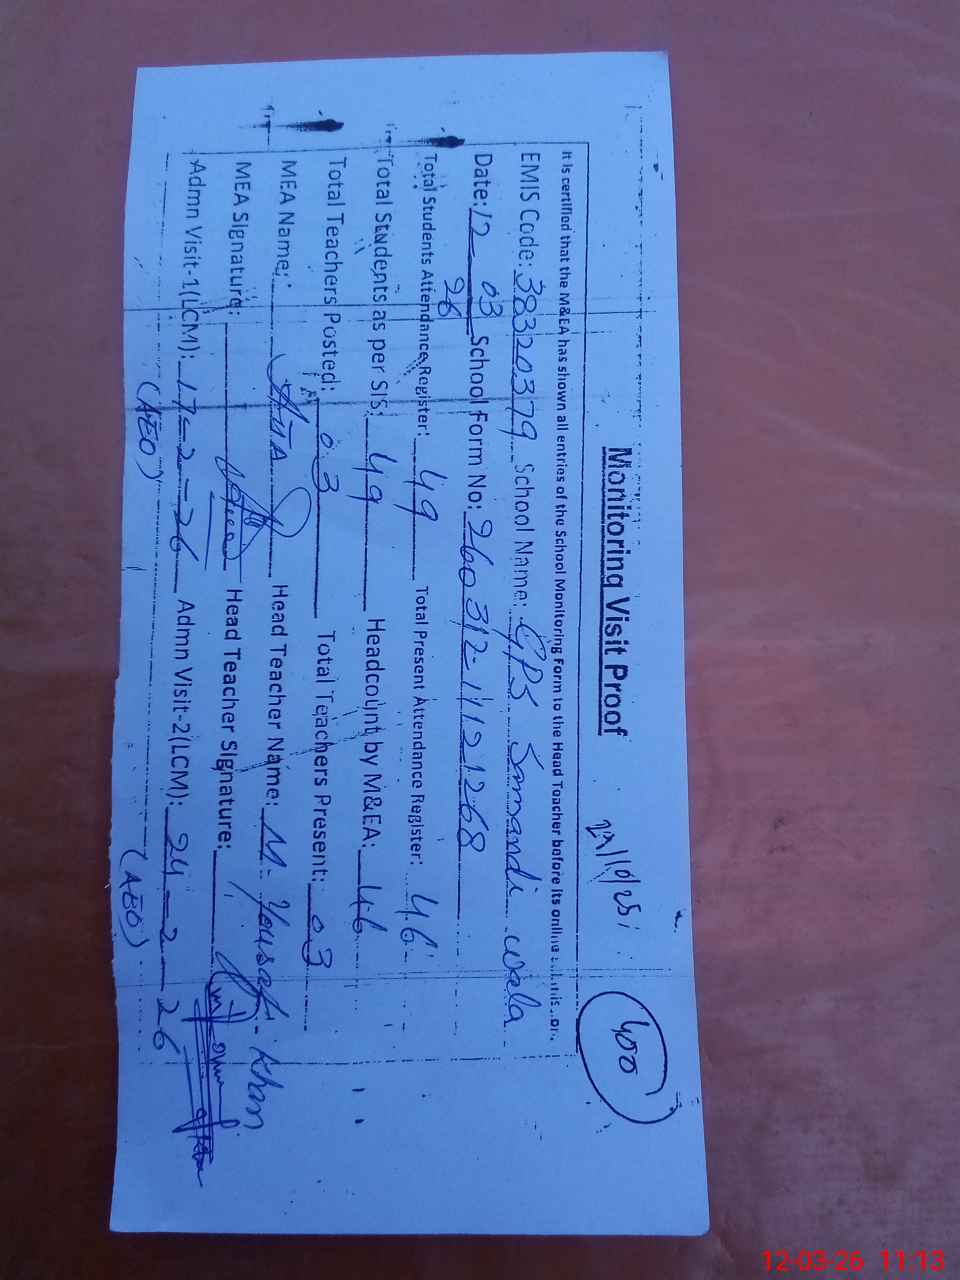 Monitoring Visit Proof
23/10/25
400
It is certified that the M&EA has shown all entries of the School Monitoring Form to the Head Teacher before its online
EMIS Code: 38320379 School Name: GPS Smandi wala
Date: 12 03 26 School Form No: 260312-11121268
Total Students Attendance Register: 49 Total Present Attendance Register: 46
Total Students as per SIS: 49 Headcount by M&EA: 46
Total Teachers Posted: 03 Total Teachers Present: 03
MEA Name: Head Teacher Name: M. Yousaf Khan
MEA Signature: Head Teacher Signature:
Admn Visit-1(LCM): 17-2-26 Admn Visit-2(LCM): 24-2-26
(AEO) (AEO)
12-03-26 11:13